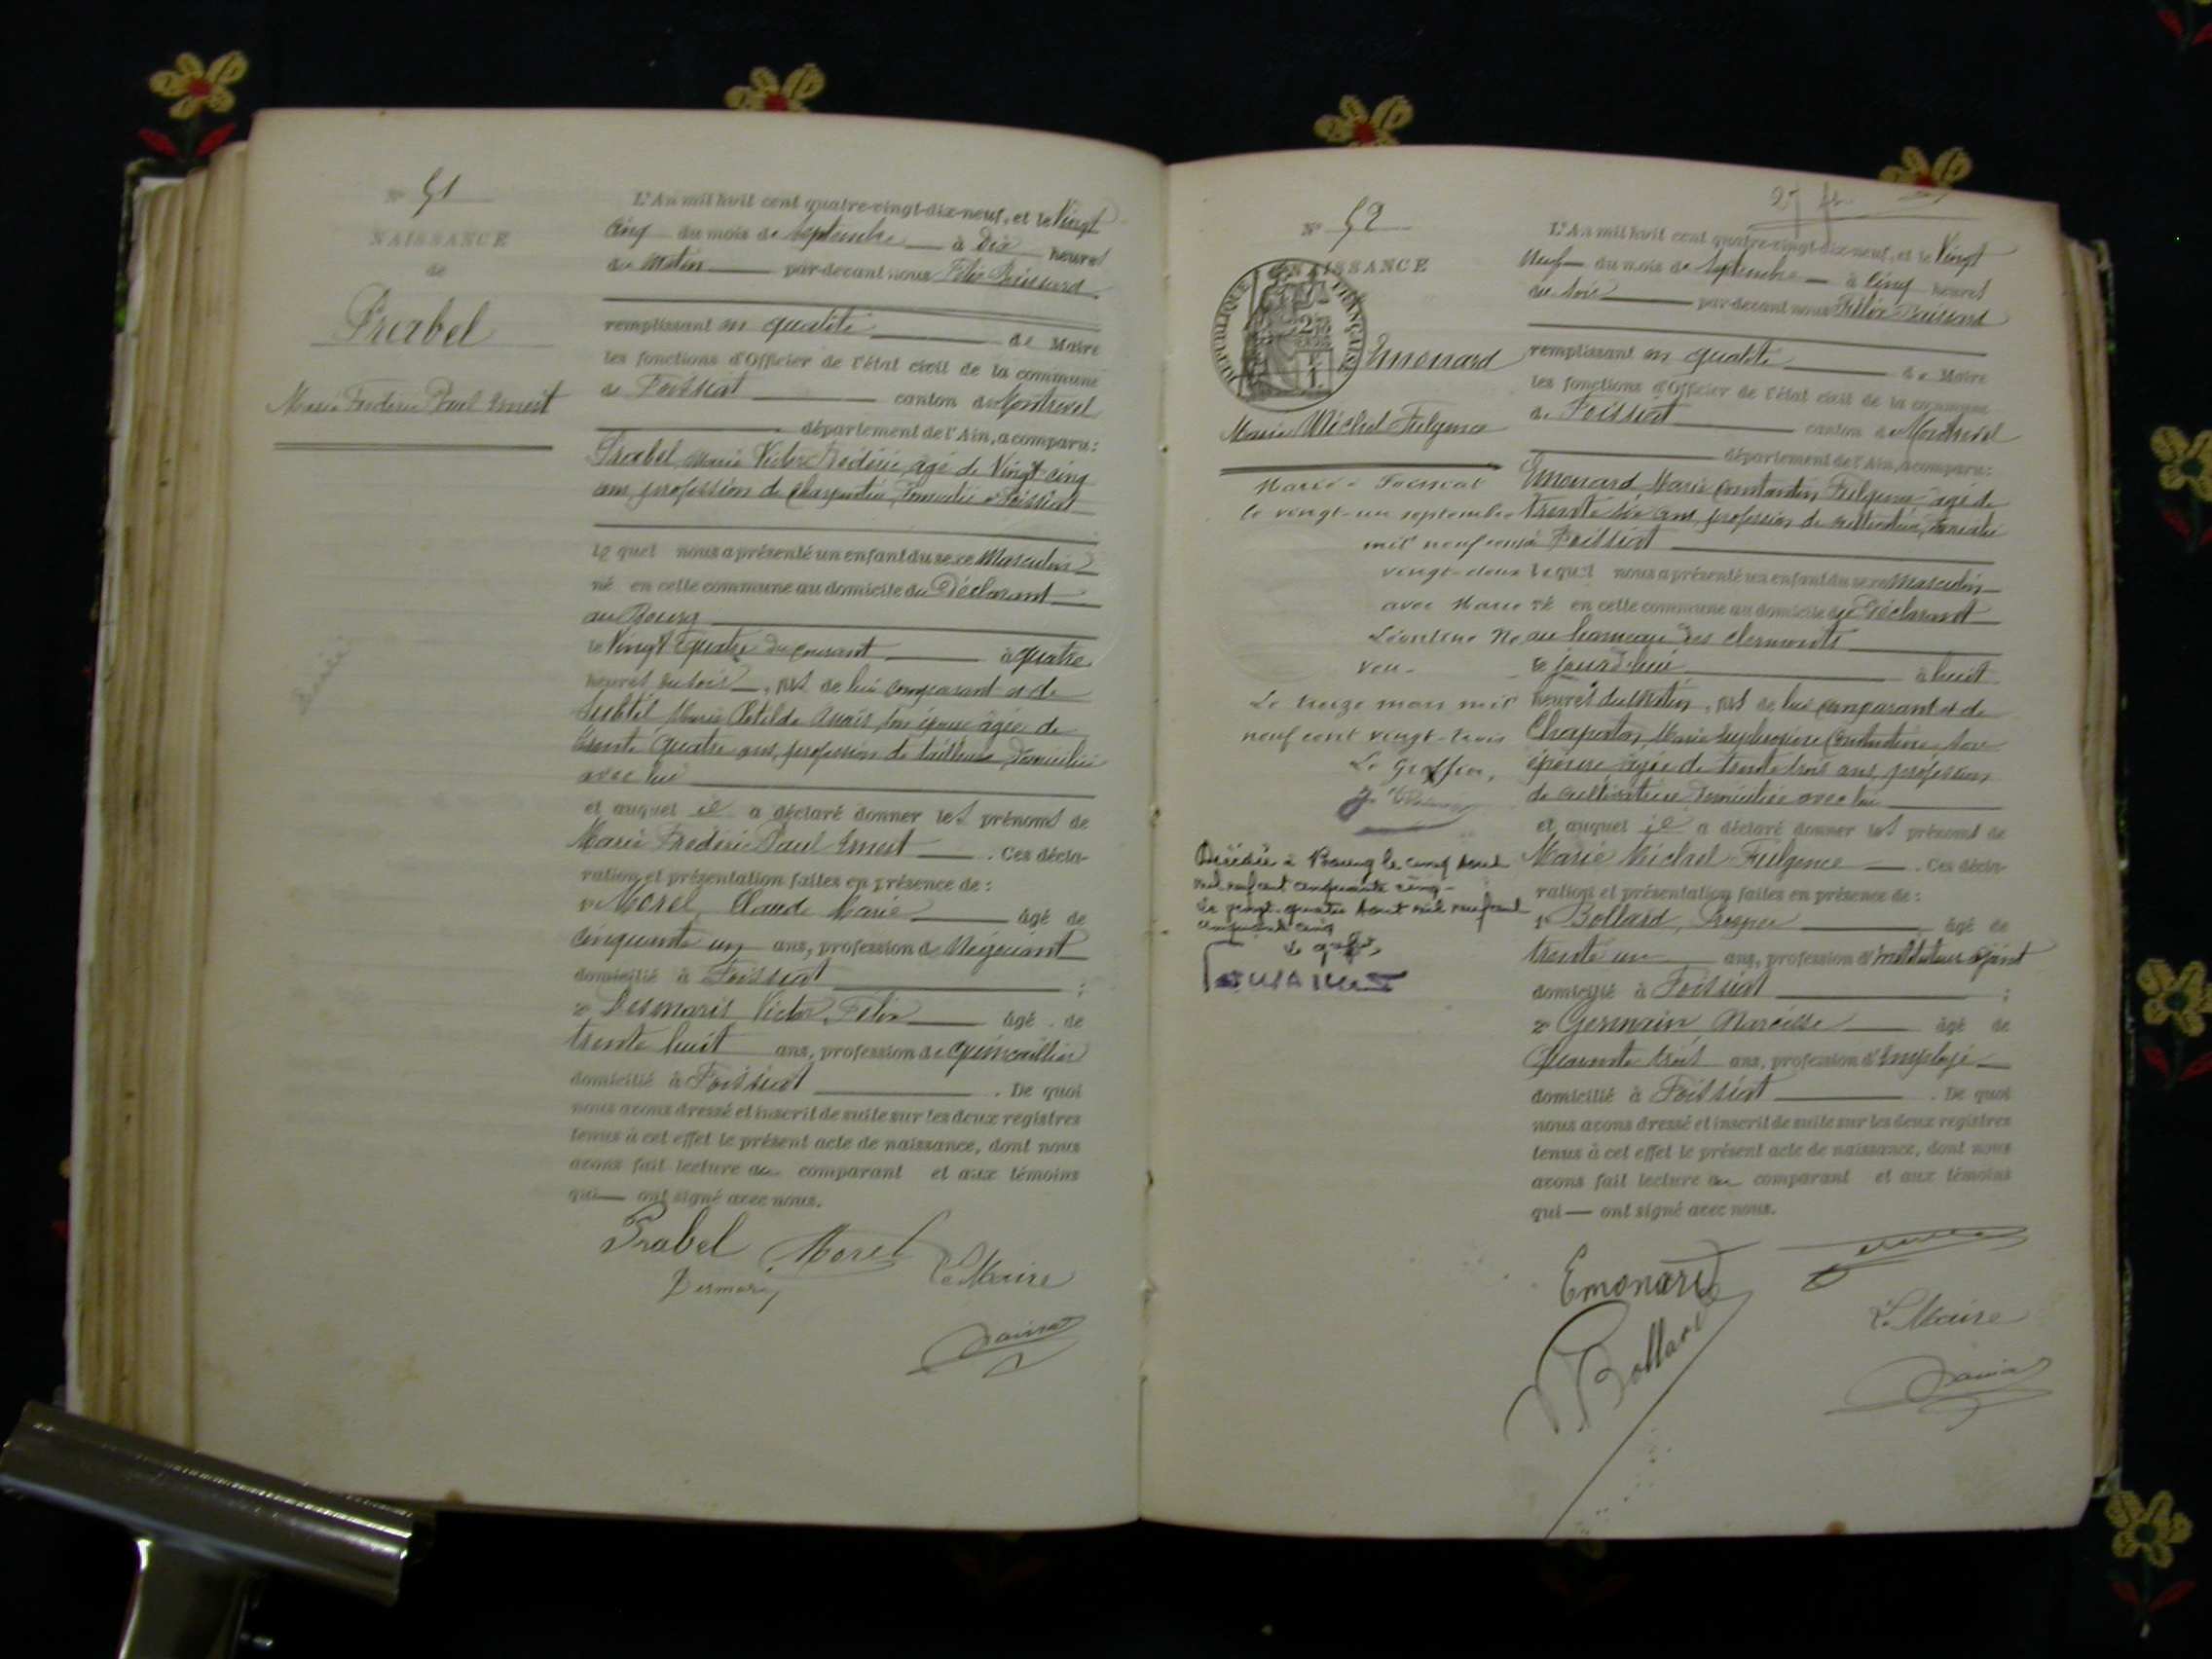 N° 51
NAISSANCE
de
Prabel
Marie Frédéric Paul Ernest
L'An mil huit cent quatre-vingt-dix-neuf, et le Vingt
Cinq du mois de Septembre à Dix heures
du Matin par-devant nous Félix
remplissant en qualité de Maire
les fonctions d'Officier de l'état civil de la commune
de Foissiat canton de Montrevel
département de l'Ain, a comparu:
Prabel Marie Victor Frédéric âgé de Vingt cinq
ans, profession de charpentier, domicilié à Foissiat
le quel nous a présenté un enfant du sexe Masculin
né en cette commune au domicile du Déclarant
au Bourg
le Vingt quatre du courant à quatre
heures du soir, fils de lui comparant et de
Subtil Marie Clotilde Anaïs, son épouse âgée de
trente quatre ans, profession de tailleuse, domiciliée
avec lui
et auquel il a déclaré donner les prénoms de
Marie Frédéric Paul Ernest. Ces décla-
ration et présentation faites en présence de:
1° Morel, Claude Marie âgé de
Cinquante un ans, profession de Négociant
domicilié à Foissiat;
2° Desmaris Victor, Félix âgé de
trente huit ans, profession de quincaillier
domicilié à Foissiat. De quoi
nous avons dressé et inscrit de suite sur les deux registres
tenus à cet effet le présent acte de naissance, dont nous
avons fait lecture au comparant et aux témoins
qui ont signé avec nous.
Prabel Morel Le Maire
Desmaris
N° 52
NAISSANCE
RÉPUBLIQUE FRANÇAISE
Emonard
Marie Michel Fulgence
Marié à Foissiat
le vingt-un septembre
mil neuf cent
vingt-deux
avec Marie
Léontine Ne
veu.
Le treize mars mil
neuf cent vingt-trois
Le Greffier,
Décédé à Bourg le cinq Aout
mil neuf cent cinquante cinq
Le vingt-quatre Aout mil neuf cent
cinquante cinq
Le greffier
L'An mil huit cent quatre-vingt-dix-neuf, et le Vingt
Neuf du mois de Septembre à Cinq heures
du Soir par-devant nous Félix
remplissant en qualité de Maire
les fonctions d'Officier de l'état civil de la commune
de Foissiat canton de Montrevel
département de l'Ain, a comparu:
Emonard Marie Constantin Fulgence âgé de
trente six ans, profession de cultivateur, domicilié
à Foissiat
lequel nous a présenté un enfant du sexe Masculin
né en cette commune au domicile du Déclarant
au hameau des Clermonts
ce jourd'hui à huit
heures du Matin, fils de lui comparant et de
Chapaton, Marie son
épouse âgée de trente trois ans, profession
de cultivatrice, domiciliée avec lui
et auquel il a déclaré donner les prénoms de
Marie Michel Fulgence. Ces décla-
ration et présentation faites en présence de:
1° Bollard, Prosper âgé de
trente un ans, profession d'Instituteur adjoint
domicilié à Foissiat;
2° Germain Narcisse âgé de
Quarante trois ans, profession d'Employé
domicilié à Foissiat. De quoi
nous avons dressé et inscrit de suite sur les deux registres
tenus à cet effet le présent acte de naissance, dont nous
avons fait lecture au comparant et aux témoins
qui ont signé avec nous.
Emonard
Bollard
Le Maire